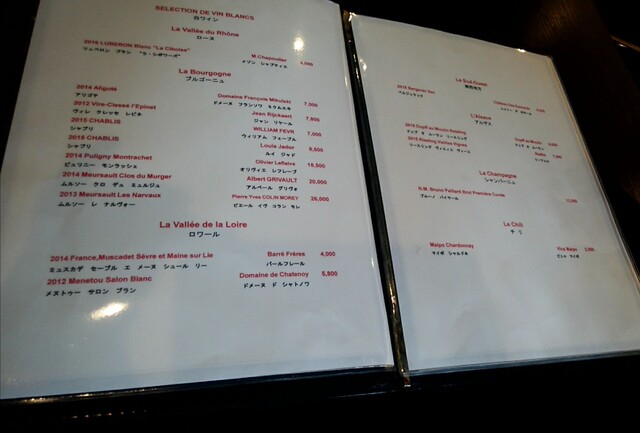 SELECTION DE VIN BLANCS
白ワイン
La Vallée du Rhône
ローヌ
2016 LUBERON Blanc "La Ciboise" M.Chapoutier 4,000
リュベロン ブラン "ラ・シボワーズ" メゾン シャプティエ
La Bourgogne
ブルゴーニュ
2014 Aligoté Domaine François Mikulski 7,000
アリゴテ ドメーヌ フランソワ ミクルスキ
2012 Vire-Clessé l'Epinet Jean Rijckaert
ヴィレ クレッセ レピネ ジャン リケール
2015 CHABLIS WILLIAM FEVR 7,000
シャブリ ウィリアム フェーブル
2015 CHABLIS Louis Jador
シャブリ ルイ ジャド
2014 Puligny Montrachet Olivier Leflaive
ピュリニー モンラッシェ オリヴィエ レフレーブ
2014 Meursault Clos du Murger Albert GRIVAULT 20,000
ムルソー クロ デュ ミュルジュ アルベール グリヴォ
2013 Meursault Les Narvaux Pierre Yves COLIN MOREY 26,000
ムルソー レ ナルヴォー ピエール イヴ コラン モレ
La Vallée de la Loire
ロワール
2014 France,Muscadet Sèvre et Maine sur Lie Barré Frères 4,000
ミュスカデ セーブル エ メーヌ シュール リー バールフレール
2012 Menetou Salon Blanc Domaine de Chatenoy 5,800
メヌトゥー サロン ブラン ドメーヌ ド シャトノワ
Le Sud-Ouest
南西地方
Bergerac Sec
ベルジュラック
L'Alsace
アルザス
Dopff au Moulin Riesling Dopff au Moulin
Riesling Vieilles Vignes
リースリング ヴィエイユ ヴィーニュ
La Champagne
シャンパーニュ
N.M. Bruno Paillard Brut Première Cuvée
ブルーノ パイヤール
Le Chili
チリ
Maipo Chardonnay Viña Maipo
マイポ シャルドネ ビニャ マイポ